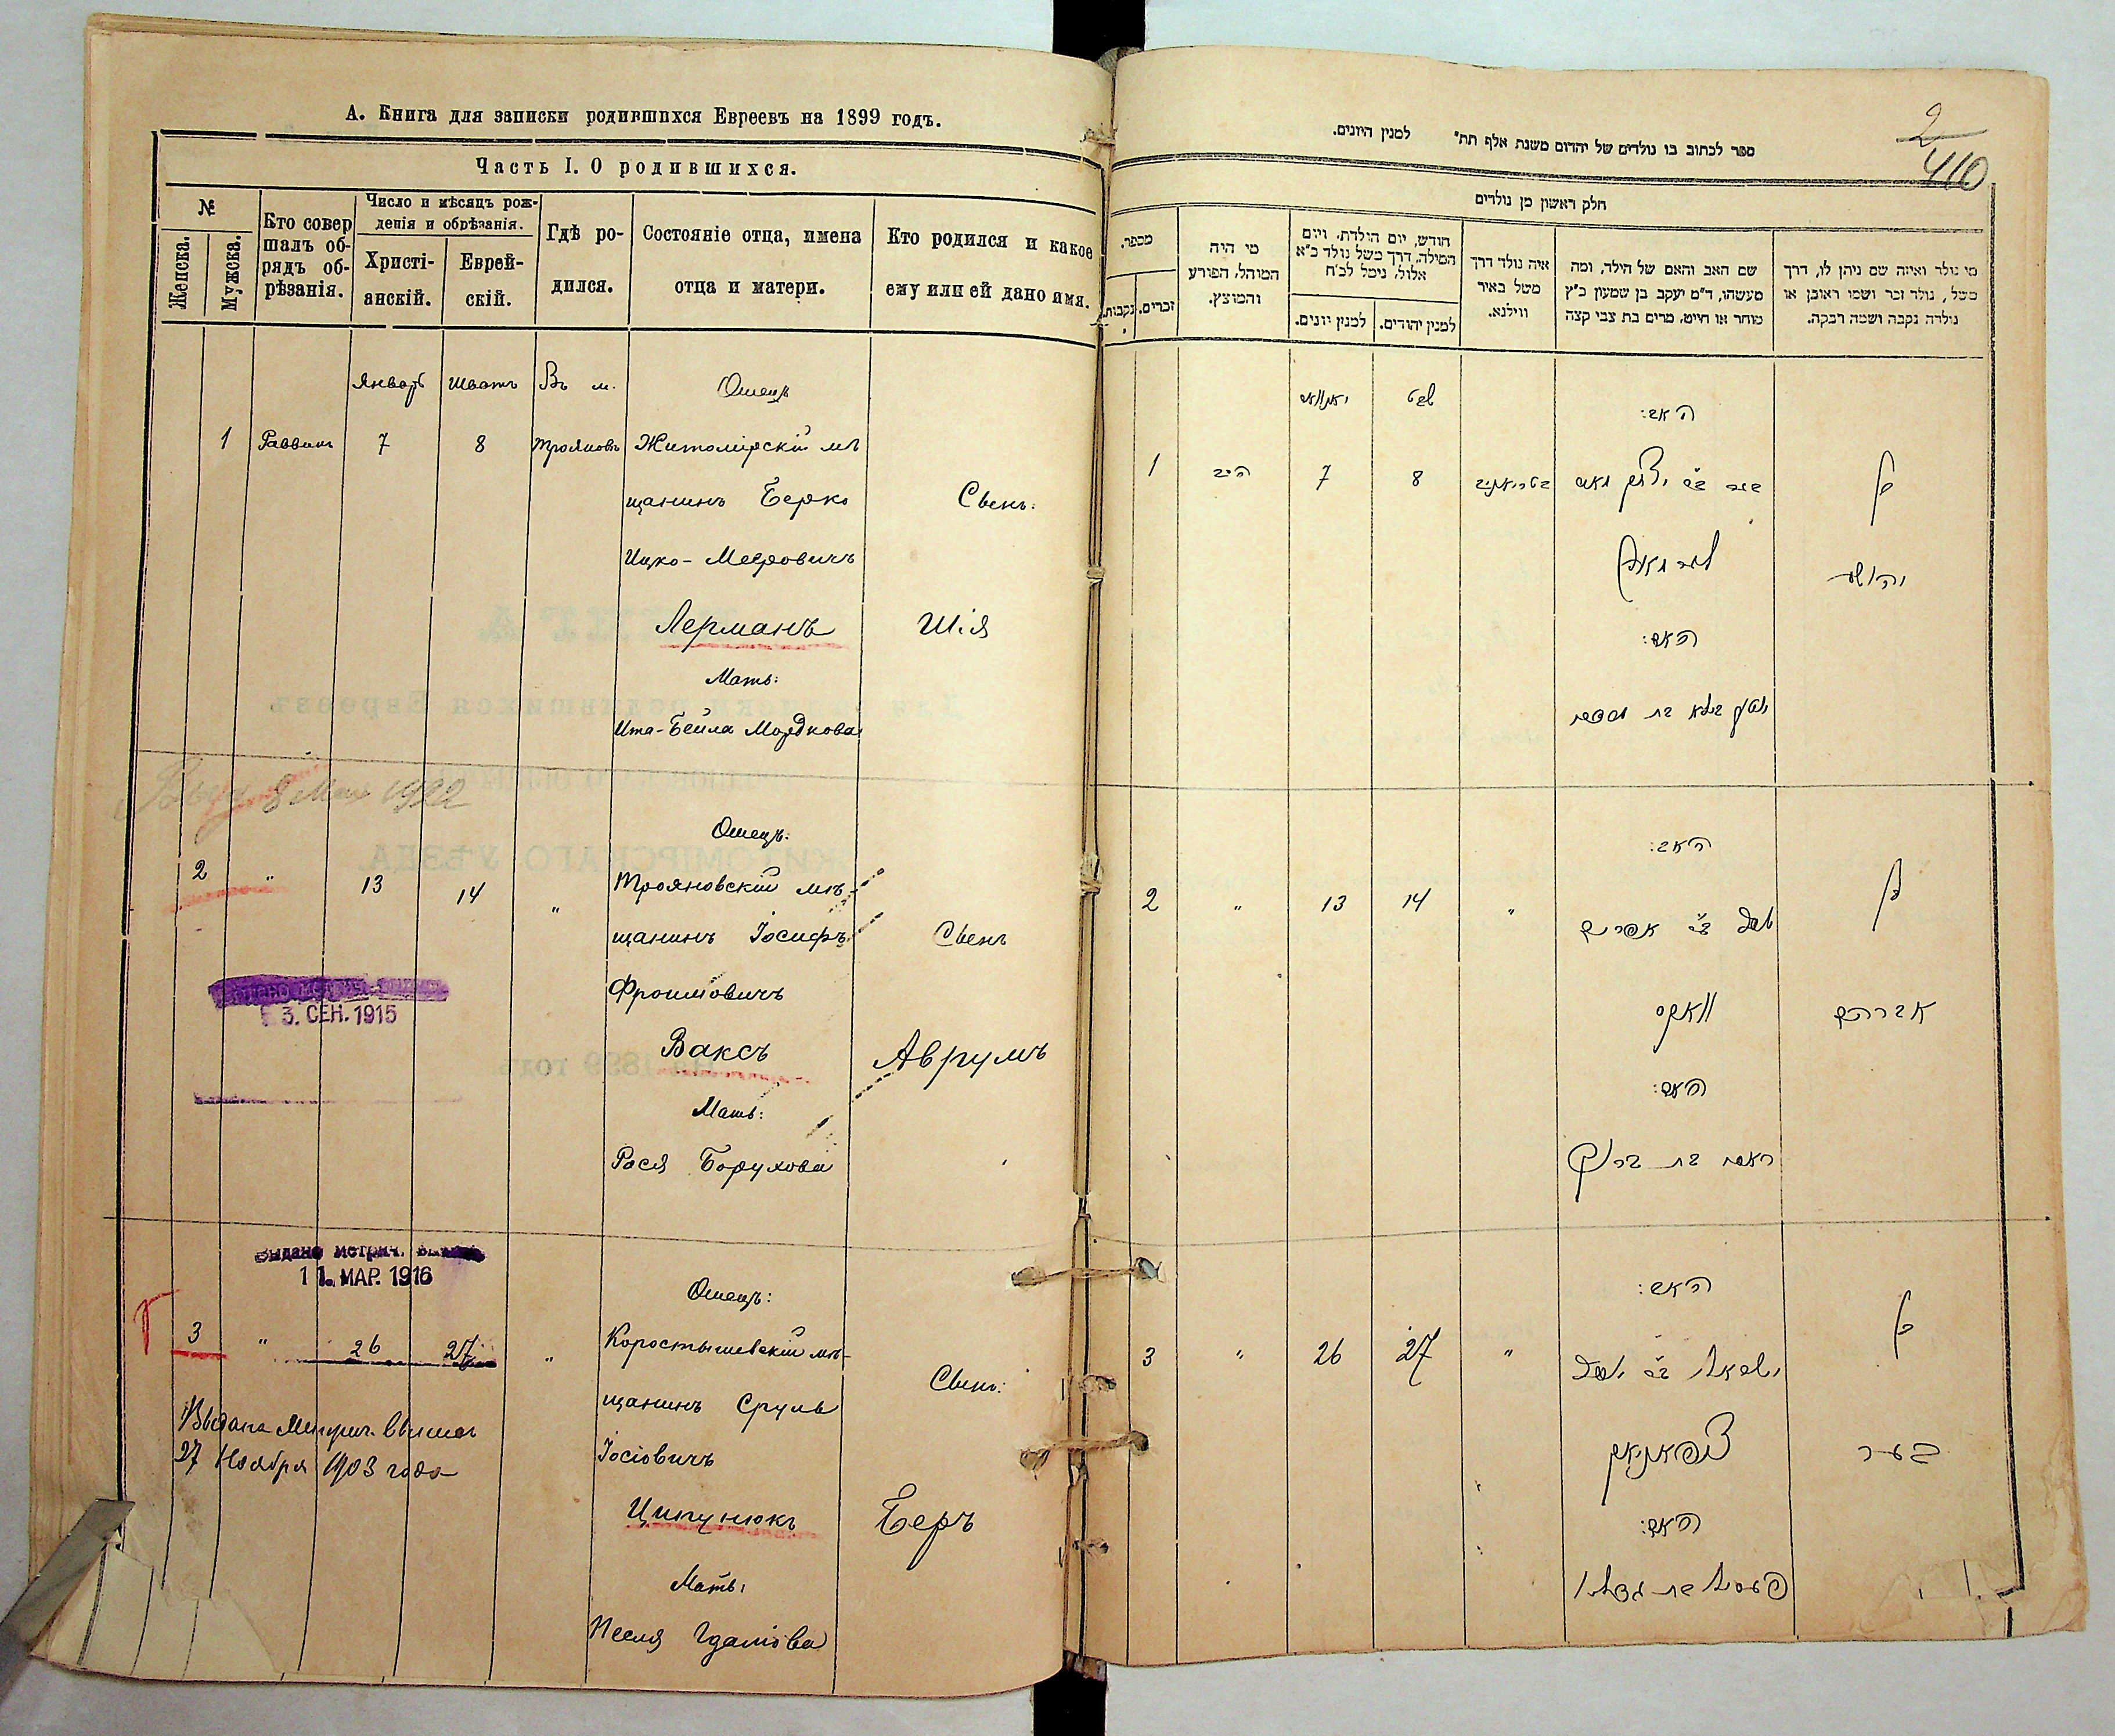 А. Книга для записки родившихся Евреевъ на 1899 годъ.
Часть I. О родившихся.
№
Женска.
Мужска.
Кто совер
шалъ об-
рядъ об-
рѣзанія.
Число и мѣсяцъ рож-
денія и обрѣзанія.
Христі-
анскій.
Еврей-
скій.
Гдѣ ро-
дился.
Состояніе отца, имена
отца и матери.
Кто родился и какое
ему или ей дано имя.
Январь Шватъ Въ м. Отецъ
1 Раввинъ 7 8 Трояновъ Житомірскій мѣ
щанинъ Берко Сынъ:
Ицко-Мееровичъ
Лерманъ Шія
Мать:
Ита-Бейла Мордкова
8 Мая 1922
Отецъ:
2 " 13 14 " Трояновскій мѣ-
щанинъ Іосифъ Сынъ
Фроимовичъ
3. СЕН. 1915
Ваксъ Аврумъ
Мать:
Рася Борухова
Выдано метрич.
11. МАР. 1916
Отецъ:
3 " 26 27 " Коростышевскій мѣ-
щанинъ Сруль Сынъ:
Іосіовичъ
Выдана Метрич.
27 Ноября 1903 года
Ципунюкъ Беръ
Мать:
Песля Гдаліова
2
410
ספר לכתוב בו נולדים של יהדום משנת אלף תת" למנין היונים.
חלק ראשון מן נולדים
מספר.
נקבות.
זכרים.
מי היה
המוהל, הפורע
והמוצץ.
חודש, יום הולדת, ויום
המילה, דרך משל נולד כ"א
אלול, נימל לכ"ח
למנין יונים.
למנין יהודים.
איה נולד דרך
משל באיר
ווילנא.
שם האב והאם של הילד, ומה
מעשהו, ד"מ יעקב בן שמעון כ"ץ
סוחר או חייט, מרים בת צבי קצה
מי נולד ואיזה שם ניתן לו, דרך
משל, נולד זכר ושמו ראובן או
נולדה נקבה ושמה רבקה.
יאנואר שבט האב:
1 הרב 7 8 בטריאניב בער ב"ר יצחק מאיר בן
לערמאן יהושע
האם:
בילא בת
האב:
2 " 13 14 " יוסף ב"ר אפרים בן
וואקס אברהם
האם:
ראסי בת ברוך
האב:
3 " 26 27 " ישראל ב"ר יוסף בן
בער
האם:
פעסיל בת גדליו